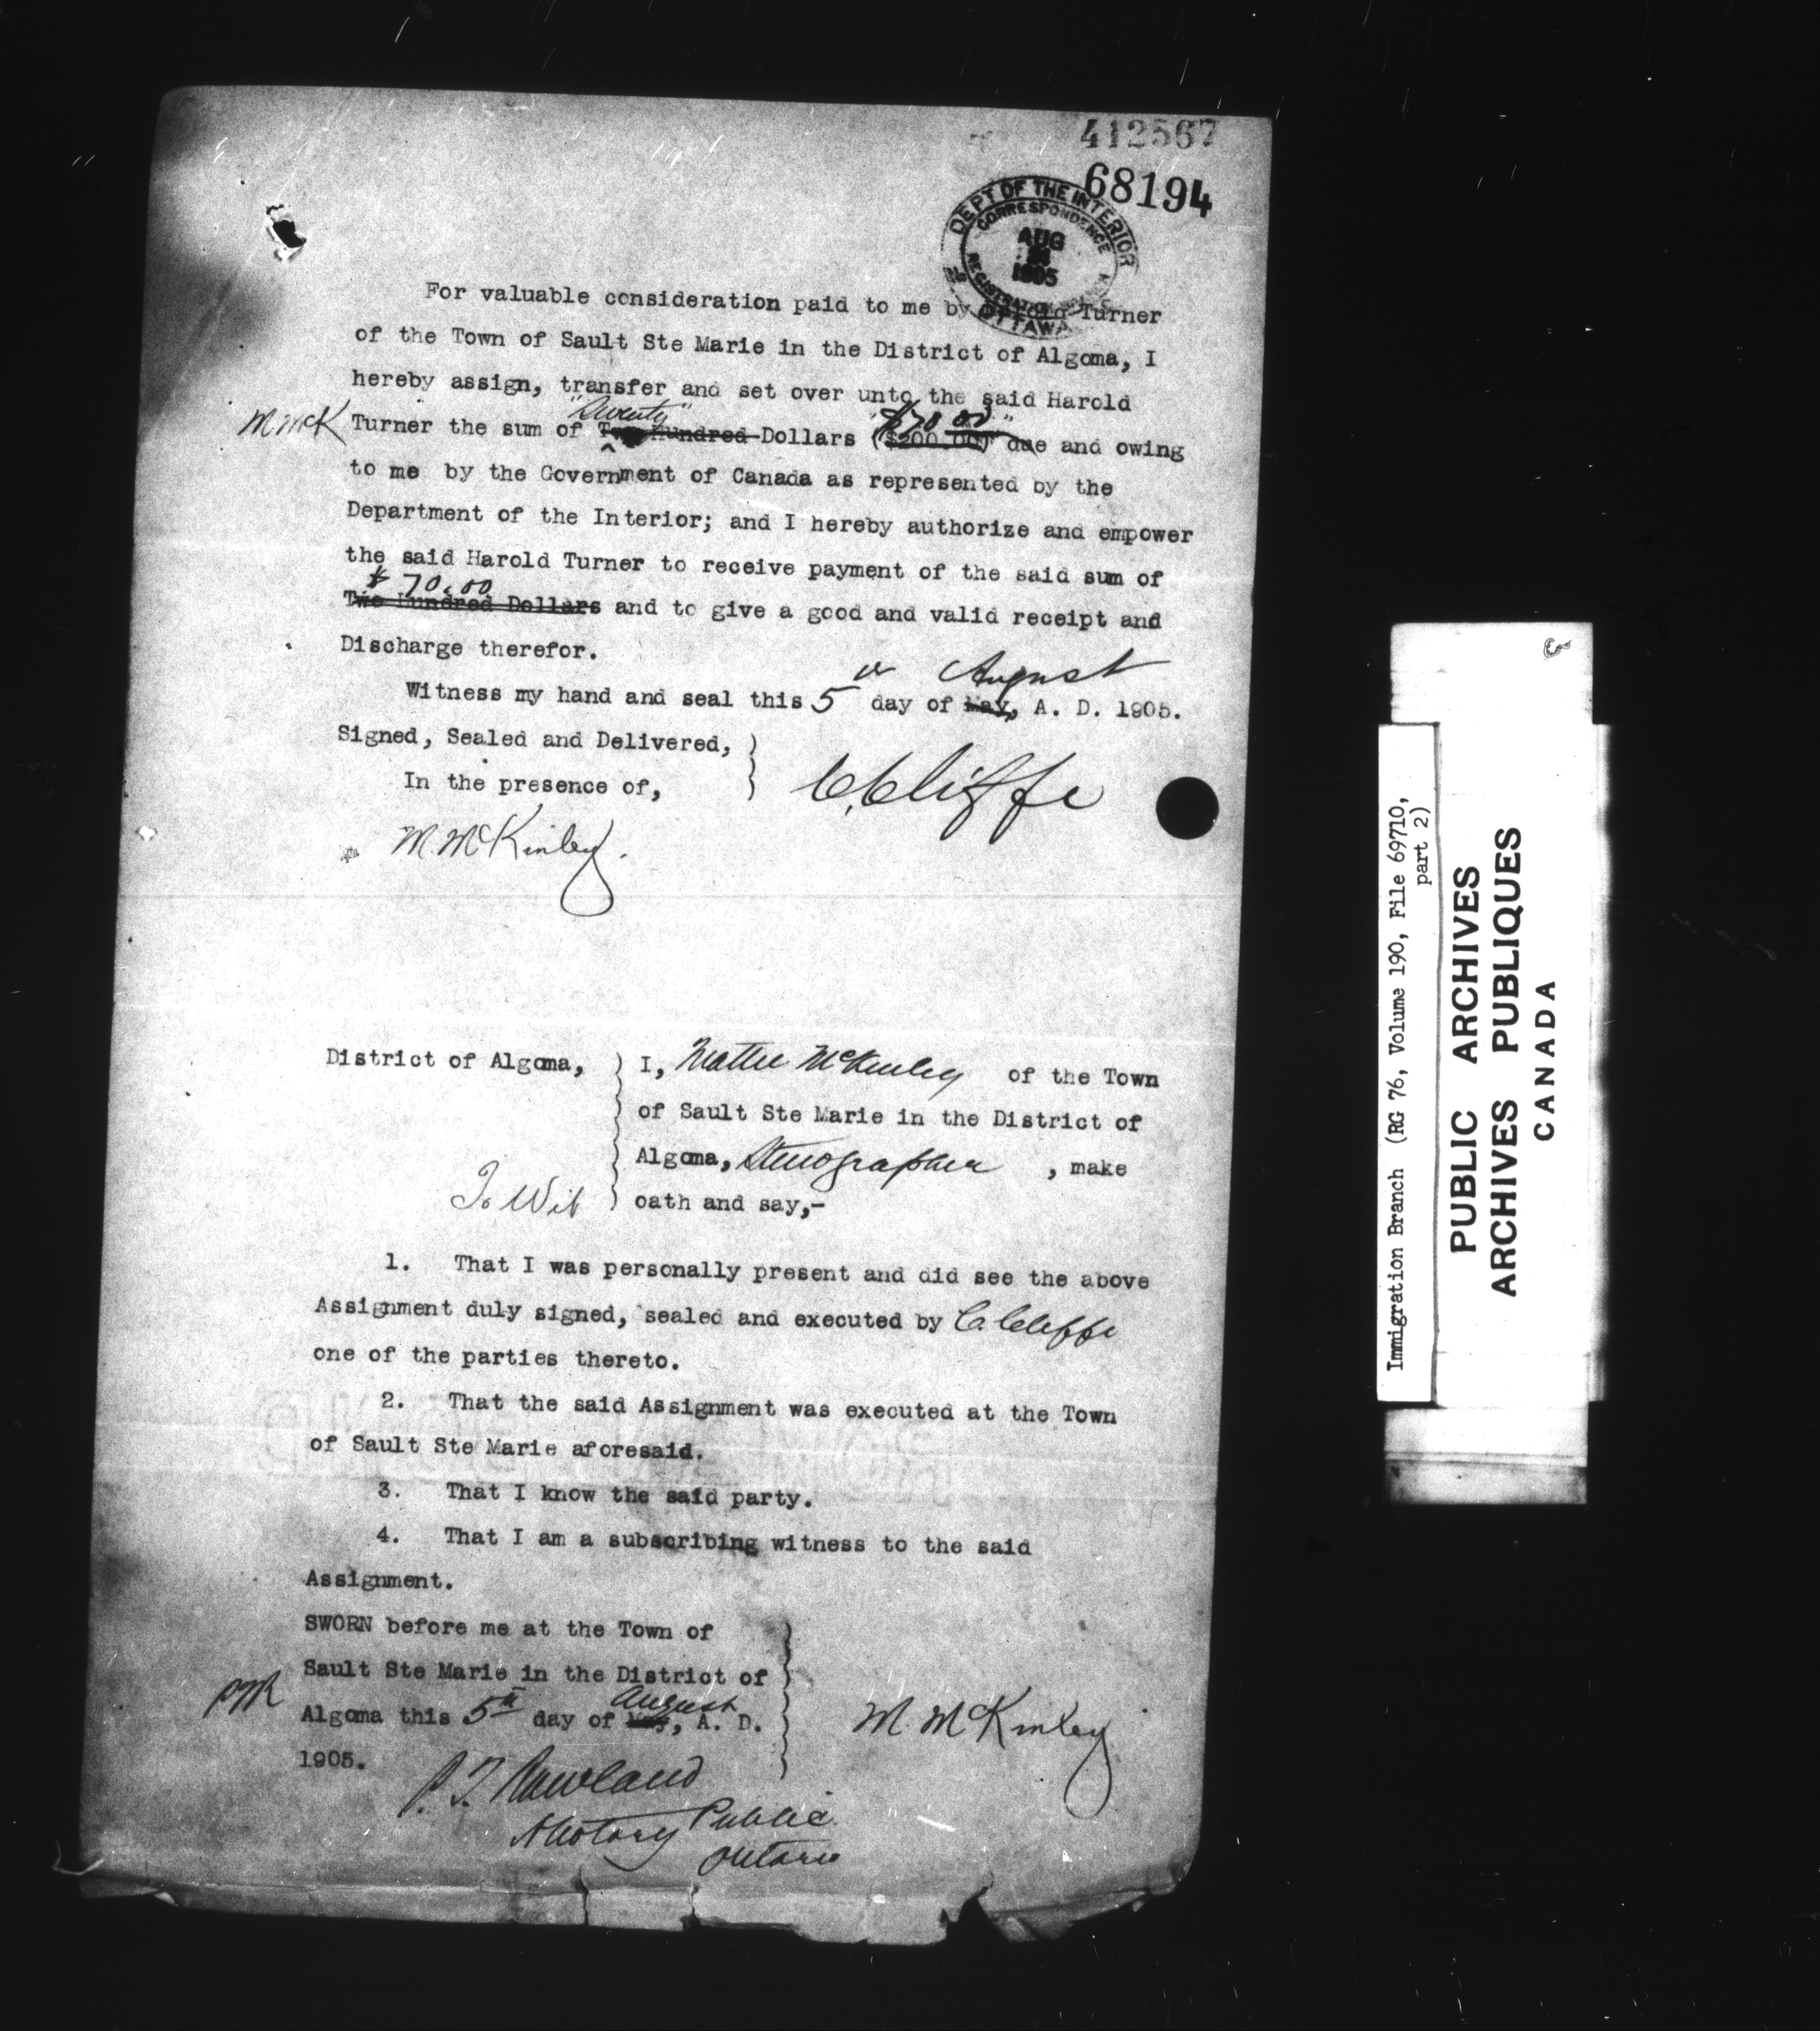 412567
68194
DEPT OF THE INTERIOR
CORRESPONDENCE
AUG
1905
REGISTRATION
OTTAWA
For valuable consideration paid to me by Harold Turner
of the Town of Sault Ste Marie in the District of Algoma, I
hereby assign, transfer and set over unto the said Harold
"Seventy" "$70.00"
M McK Turner the sum of Two Hundred Dollars ($200.00) due and owing
to me by the Government of Canada as represented by the
Department of the Interior; and I hereby authorize and empower
the said Harold Turner to receive payment of the said sum of
$70.00
Two Hundred Dollars and to give a good and valid receipt and
Discharge therefor.
August
Witness my hand and seal this 5 day of May, A. D. 1905.
Signed, Sealed and Delivered,
In the presence of,
C. Cliffe
M. McKinley.
District of Algoma, I, Mattie McKinley of the Town
of Sault Ste Marie in the District of
Algoma, Stenographer, make
To Wit oath and say,-
1. That I was personally present and did see the above
Assignment duly signed, sealed and executed by C. Cliffe
one of the parties thereto.
2. That the said Assignment was executed at the Town
of Sault Ste Marie aforesaid.
3. That I know the said party.
4. That I am a subscribing witness to the said
Assignment.
SWORN before me at the Town of
Sault Ste Marie in the District of
August
Algoma this 5th day of May, A. D.
1905.
M. McKinley
P. T. Rowland
A Notary Public
Ontario
Immigration Branch (RG 76, Volume 190, File 69710,
part 2)
PUBLIC ARCHIVES
ARCHIVES PUBLIQUES
CANADA